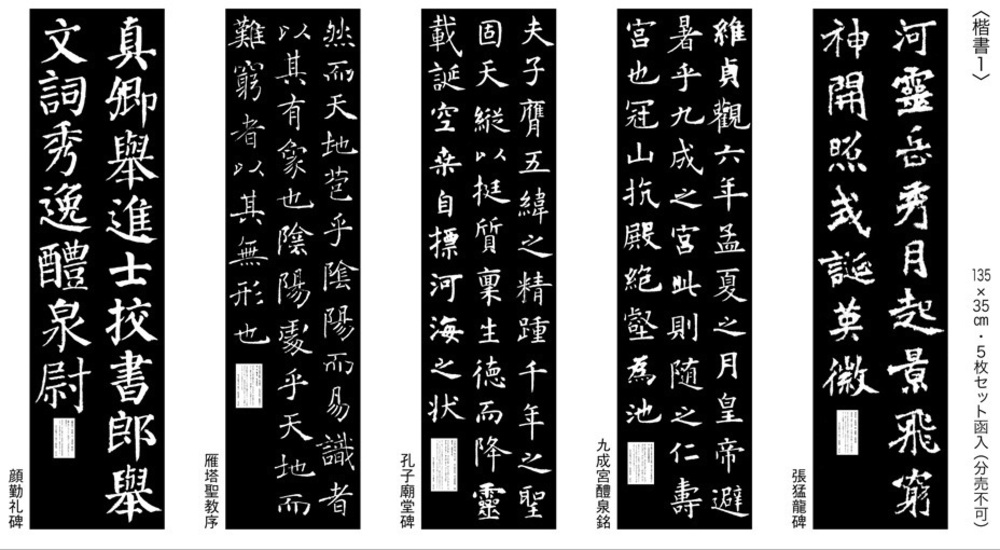 〈楷書1〉
135×35㎝・5枚セット函入（分売不可）
河靈岳秀月起景飛窮
神開照或誕英徽
張猛龍碑
維貞觀六年孟夏之月皇帝避
暑乎九成之宮此則隨之仁壽
宮也冠山抗殿絶壑為池
九成宮醴泉銘
夫子膺五緯之精踵千年之聖
固天縱以挺質稟生德而降靈
載誕空桒自摽河海之状
孔子廟堂碑
然而天地苞乎陰陽而易識者
以其有象也陰陽處乎天地而
難窮者以其無形也
雁塔聖教序
真卿舉進士挍書郎舉
文詞秀逸醴泉尉
顔勤礼碑